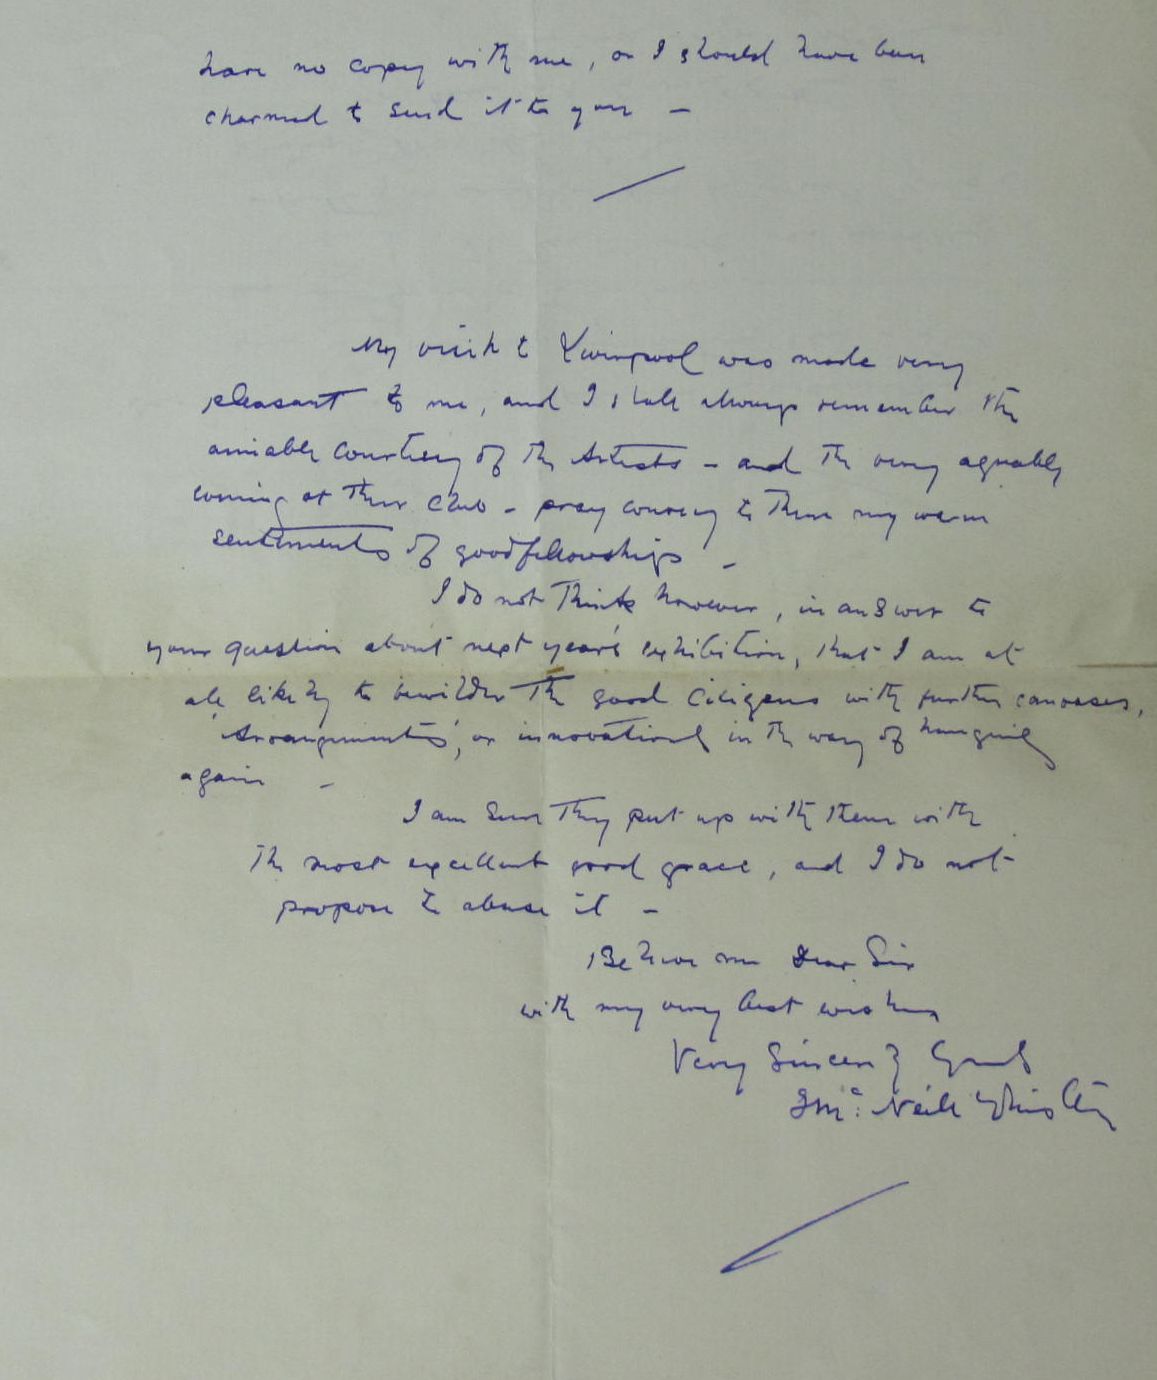 have no copy with me, or I should have been
charmed to send it to you —
My visit to Liverpool was made very
pleasant to me, and I shall always remember the
amiable courtesy of the Artists — and the very agreeable
evening at their Club — pray convey to them my warm
sentiments of goodfellowship —
I do not think however, in answer to
your question about next year's exhibition, that I am at
all likely to bewilder the good Citizens with further canvases,
'Arrangements', or innovations in the way of hanging
again —
I am sure they put up with them with
the most excellent good grace, and I do not
propose to abuse it —
Believe me Dear Sir
with my very best wishes
Very Sincerely Yours
J Mc. Neill Whistler